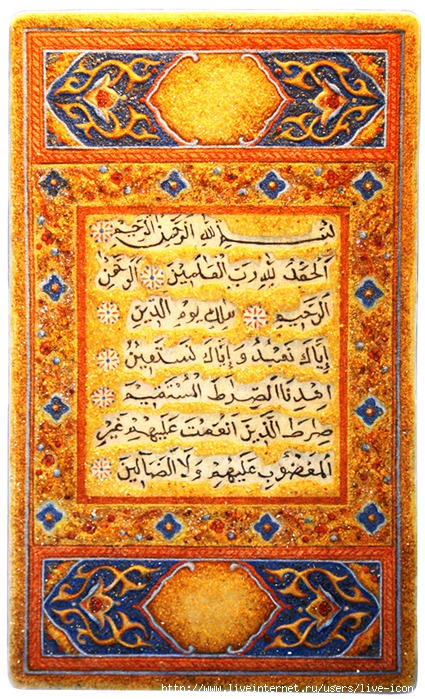 بسم الله الرحمن الرحيم
الحمد لله رب العالمين الرحمن
الرحيم ملك يوم الدين
إياك نعبد و إياك نستعين
اهدنا الصراط المستقيم
صراط الذين انعمت عليهم غير
المغضوب عليهم ولا الضالين
http://www.liveinternet.ru/users/live-icon